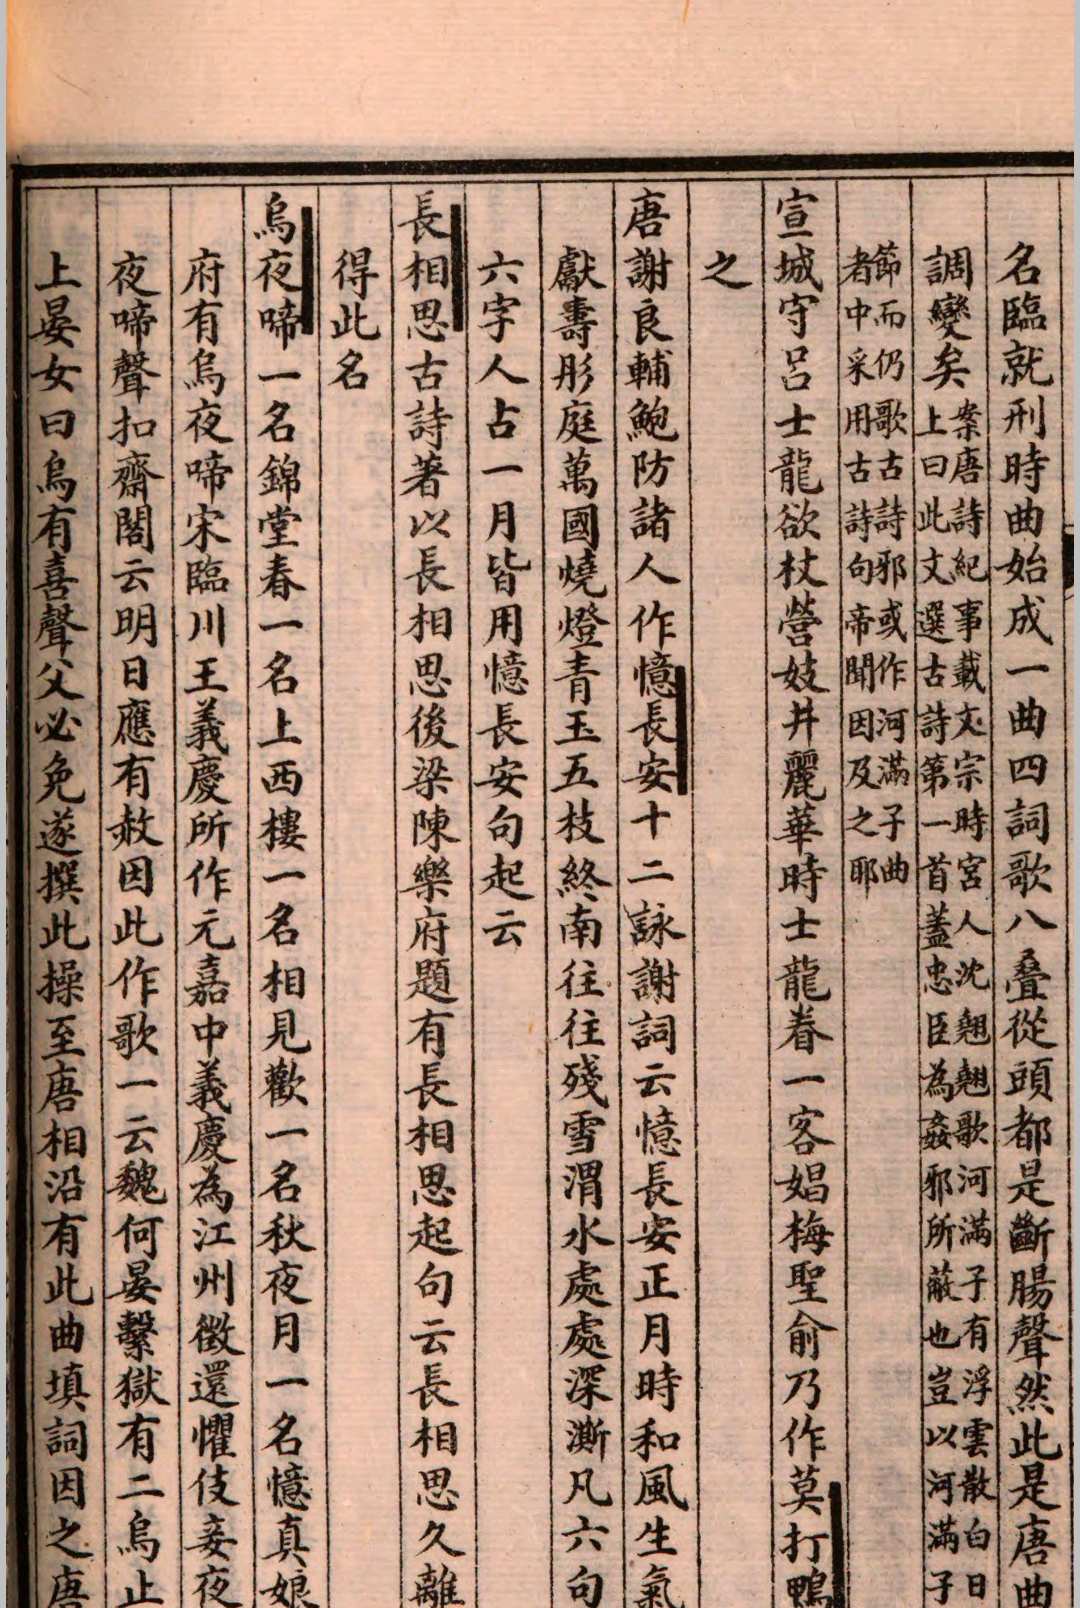 名臨就刑時曲始成一曲四詞歌八疊從頭都是斷腸聲然此是唐曲
調變矣案唐詩紀事載文宗時宮人沈翹翹歌河滿子有浮雲散白日
上曰此文選古詩第一首蓋忠臣為姦邪所蔽也豈以河滿子
節而仍歌古詩邪或作河滿子曲
者中采用古詩句帝聞因及之耶
宣城守呂士龍欲杖營妓井麗華時士龍眷一客娼梅聖俞乃作莫打鴨
之
唐謝良輔鮑防諸人作憶長安十二詠謝詞云憶長安正月時和風生氣
獻壽彤庭萬國燒燈青玉五枝終南往往殘雪渭水處處深澌凡六句
六字人占一月皆用憶長安句起云
長相思古詩著以長相思後梁陳樂府題有長相思起句云長相思久離
得此名
烏夜啼一名錦堂春一名上西樓一名相見歡一名秋夜月一名憶真娘
府有烏夜啼宋臨川王義慶所作元嘉中義慶為江州徵還懼伎妾夜
夜啼聲扣齋閤云明日應有赦因此作歌一云魏何晏繫獄有二烏止
上晏女曰烏有喜聲父必免遂撰此操至唐相沿有此曲填詞因之唐